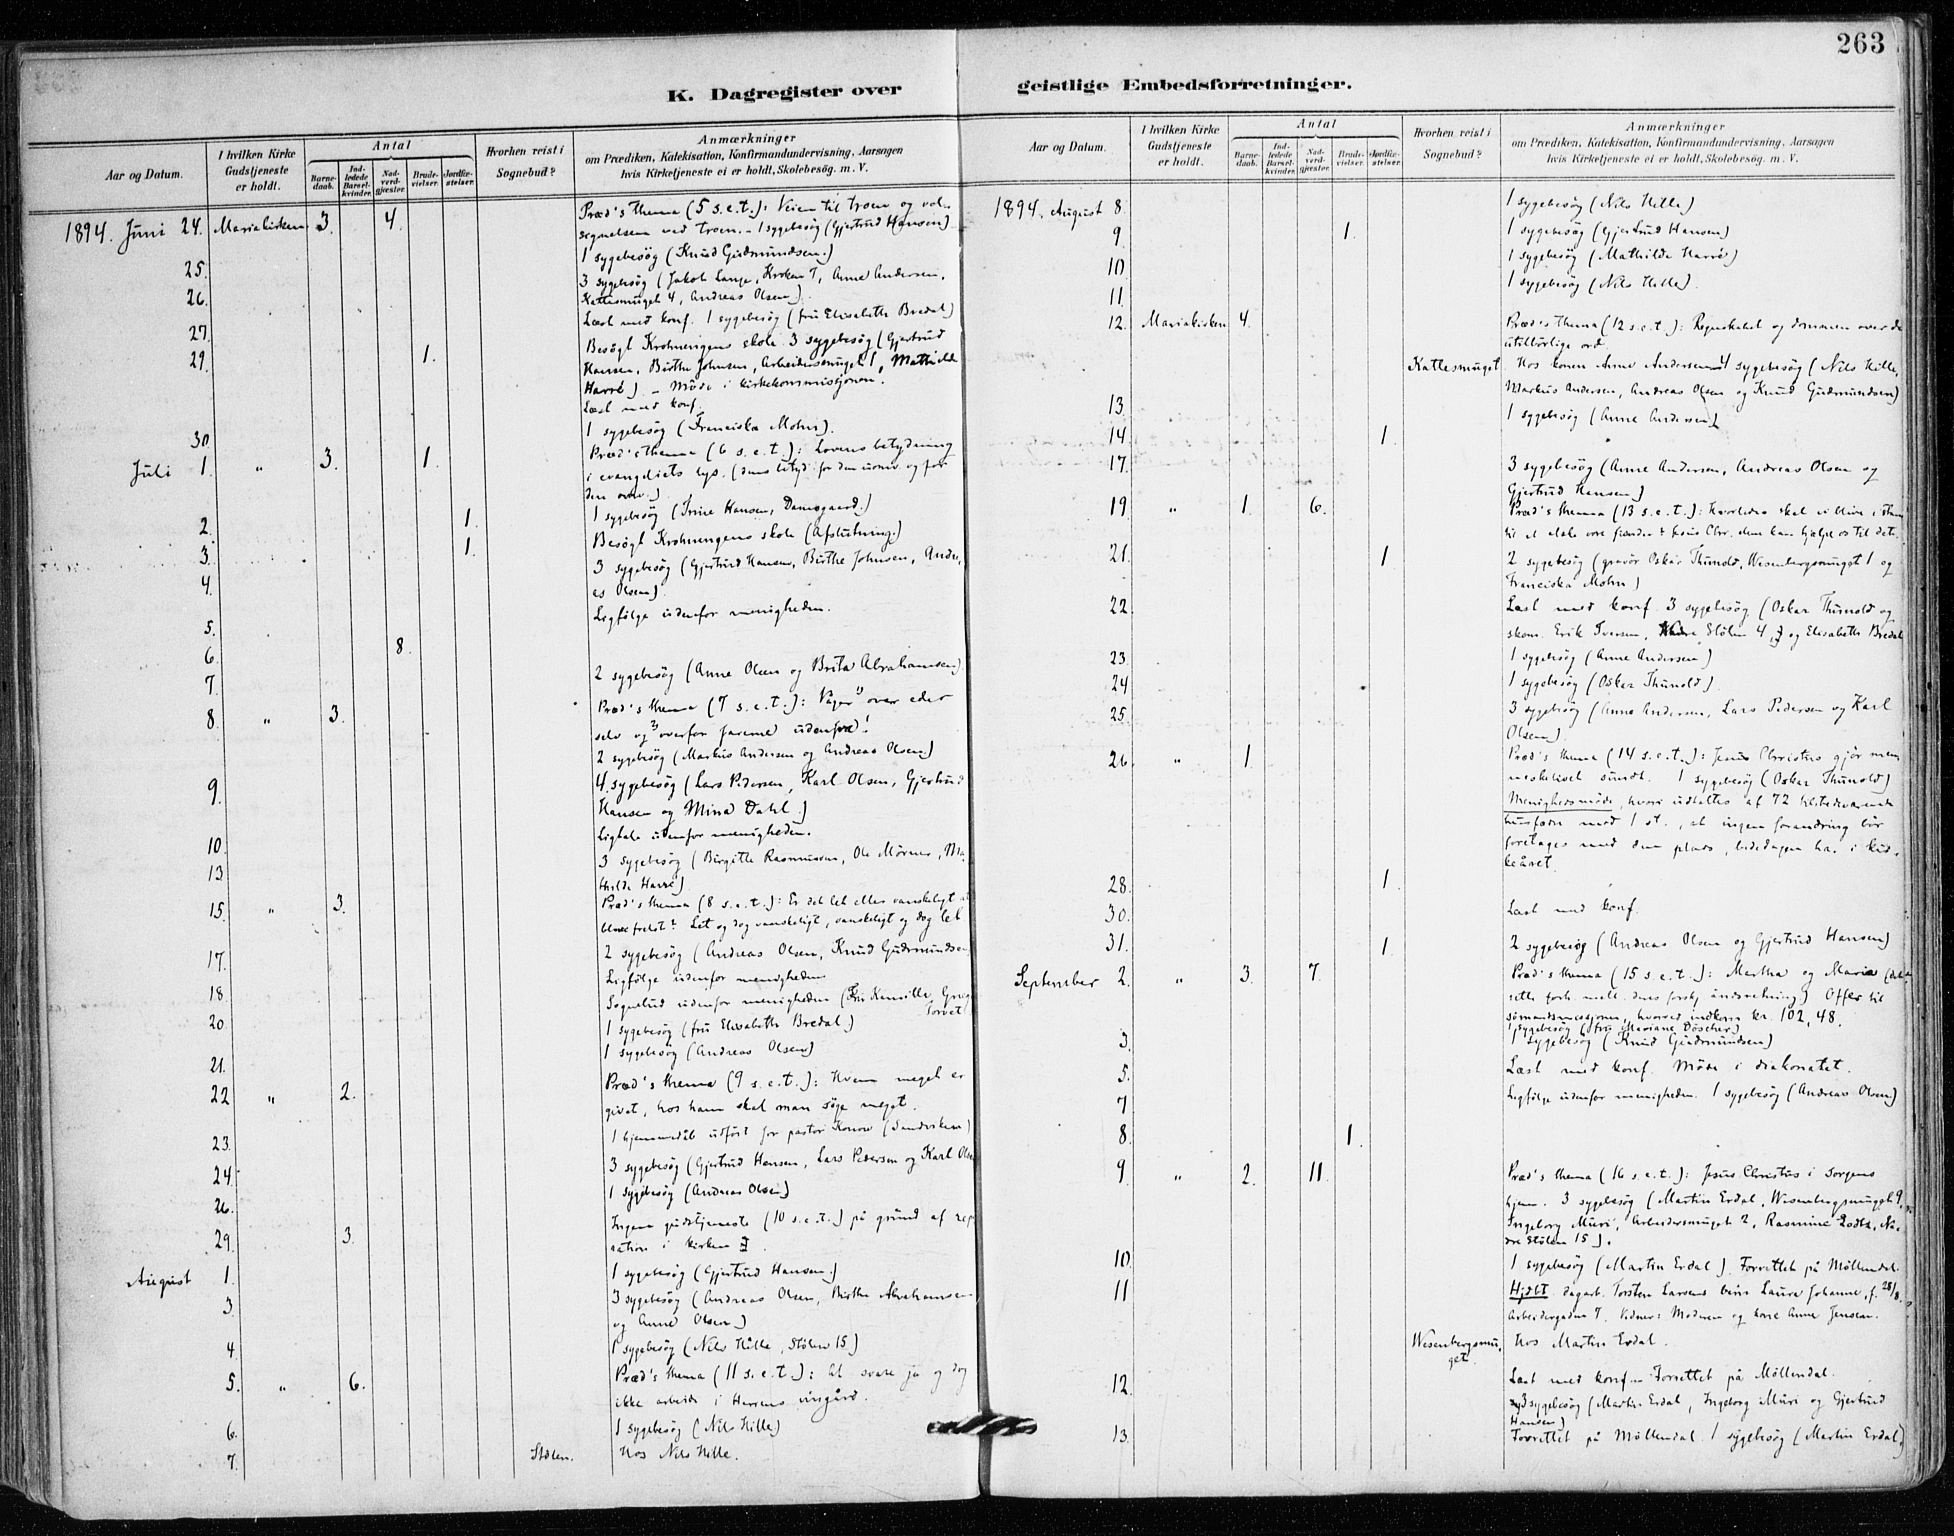 263
K. Dagregister over geistlige Embedsforretninger.
Aar og Datum. I hvilken Kirke Gudstjeneste er holdt. Antal Barne-daab. Ind-ledede Barsel-kvinder. Nad-verd-gjæster. Brude-vielser. Jordfæ-stelser. Hvorhen reist i Sognebud? Anmærkninger
om Prædiken, Katekisation, Konfirmandundervisning, Aarsagen
hvis Kirketjeneste ei er holdt, Skolebesøg. m. V.
1894. Juni 24. Mariakirken 3. 4. Præd's thema (5 s.e.t.): Veien til troen og vel-
signelsen ved troen. – 1 sygebesög (Gjertrud Hansen)
25. 1 sygebesög (Knud Gudmundsen.)
26. 3 sygebesög (Jakob Lange, Kroken 7, Anne Andersen,
Kattesmuget 4, Andreas Olsen)
27. Læst med konf. 1 sygebesög (fru Elisabeth Bredal)
29. 1. Besögt Krohnengens skole. 3 sygebesög (Gjertrud
Hansen, Birthe Johnsen, Arbeidersmuget 1, Mathilde
Harré) – Möde i kirkekommissjonen.
Læst med konf.
30 1 sygebesög (Franciska Mohn).
Juli 1. " 3. 1. Præd's thema (6 s.e.t.): Lovens betydning
i evangeliets lys. (dens betyd. for den uomv. og for
den omv.)
2. 1. 1 sygebesög (Trine Hansen, Damsgaard.)
3. 1. Besögt Krohnengens skole (Afslutning.)
4. 3 sygebesög (Gjertrud Hansen, Birthe Johnsen, Andre-
as Olsen).
5. Ligfölge udenfor menigheden.
6. 8.
7. 2 sygebesög (Anne Olsen og Brita Abrahamsen)
8. " 3. Præd's thema (7 s.e.t.): Vager over eder
selv og overfor farerne udenfra!
2 sygebesög (Markus Andersen og Andreas Olsen.)
9. 4 sygebesög (Lars Pedersen, Karl Olsen, Gjertrud
Hansen og Mina Dahl.)
10. Ligtale udenfor menigheden.
13. 3 sygebesög (Birgitte Rasmussen, Ole Mörner, Ma-
thilde Harré)
15. " 3. Præd's thema (8 s.e.t.): Er det let eller vanskeligt at
blive frelst? Let og dog vanskeligt, vanskeligt og dog let
17. 2 sygebesög (Andreas Olsen, Knud Gudmundsen
18. Ligfölge udenfor menigheden
20. Sognebud udenfor menigheden (Fru
1 sygebesög (fru Elisabeth Bredal)
21. 1 sygebesög (Andreas Olsen)
22 " 2. Præd's thema (9 s.e.t.): Hvem meget er
givet, hos ham skal man söge meget.
23. 1 hjemmedåb udfört for pastor Konow (Sandviken)
24 3 sygebesög (Gjertrud Hansen, Lars Pedersen og Karl Olsen
26. 1 sygebesög (Andreas Olsen)
29. 3. Ingen gudstjeneste (10 s.e.t.) på grund af rep-
ration i kirken
August 1. 1 sygebesög (Gjertrud Hansen.)
3. 3 sygebesög (Andreas Olsen, Birthe Abrahamsen
og Anne Olsen)
4. 1 sygebesög (Nils Hille, Stölen 15)
5. " 6. Præd's thema (11 s.e.t.): At svare ja og dog
ikke arbeide i Herrens vingård.
6. 1 sygebesög (Nils Hille)
7. Stölen. Hos Nils Hille.
Aar og Datum. I hvilken Kirke Gudstjeneste er holdt. Antal Barne-daab. Ind-ledede Barsel-kvinder. Nad-verd-gjæster. Brude-vielser. Jordfæ-stelser. Hvorhen reist i Sognebud? Anmærkninger
om Prædiken, Katekisation, Konfirmandundervisning, Aarsagen
hvis Kirketjeneste ei er holdt, Skolebesøg. m. V.
1894. August 8. 1 sygebesög (Nils Hille)
9. 1. 1 sygebesög (Gjertrud Hansen)
10 1 sygebesög (Mathilde Harré)
11. 1 sygebesög (Nils Hille).
12. Mariakirken 4. Præd's thema (12 s.e.t.): Regnskabet og dommen over de
utilbörlige ord.
Kattesmuget Hos konen Anne Andersen 4 sygebesög (Nils Hille,
Markus Andersen, Andreas Olsen og Knud Gudmundsen)
13. 1 sygebesög (Anne Andersen)
14. 1.
17. 3 sygebesög (Anne Andersen, Andreas Olsen og
Gjertrud Hansen)
19 " 1. 6. Præd's thema (13 s.e.t.): Hvorledes skal vi blive i stand
til at elske vore fiender? Jesus Chr. dem kan hjælpe os til det.
21. 1 2 sygebesög (gravör Oskar Thunold, Wesenbergsmuget 1 og
Franciska Mohn)
22. Læst med konf. 3 sygebesög (Oskar Thunold og
skom. Erik Iversen, Nedre Stölen 4, og Elisabeth Bredal
23. 1 sygebesög (Anne Andersen)
24 1 sygebesög (Oskar Thunold).
25. 3 sygebesög (Anne Andersen, Lars Pedersen og Karl
Olsen).
26. " 1. Præd's thema (14 s.e.t.): Jesus Christus gjör men-
neskelivet sundt. 1 sygebesög (Oskar Thunold)
Menighedsmöde, hvori udtaltes af 72 tilstedeværende
husfædre mod 1 st., at ingen forandring bör
foretages med den plads, bededagen har i kir-
keåret.
28. 1
30. Læst med konf.
31. 1 2 sygebesög (Andreas Olsen og Gjertrud Hansen)
September 2. " 3. 7. Præd's thema (15 s.e.t.): Martha og Maria
Offer til
sömandsmissionen, hvorved indkom kr. 102,48.
1 sygebesög (fru Mariane Döscher)
3. 1 sygebesög (Knud Gudmundsen)
5. Læst med konf. Möde i diakonatet.
7 Ligfölge udenfor menigheden. 1 sygebesög (Andreas Olsen)
8. 1.
9 " 2. 11. Præd's thema (16 s.e.t.): Jesus Christus i sorgens
hjem. 3 sygebesög (Martin Erdal, Wesenbergsmuget 9,
Ingeborg Muri, Arbeidersmuget 2, Rasmine Lodtz, Ne-
dre Stölen 15).
10. 1 sygebesög (Martin Erdal). Forrettet på Möllendal.
11 Hjdbt dagarb. Torsten Larsens barn Laura Johanne, f. 28/8.
Arbeidergaden 7. Vidner: Moderen og kone Anne Jensen.
Wesenbergsmu-
get. Hos Martin Erdal.
12. Læst med konf. – Forrettet på Möllendal.
3 sygebesög (Martin Erdal, Ingeborg Muri og Gjertrud
Hansen)
13. Forrettet på Möllendal. 1 sygebesög (Martin Erdal)